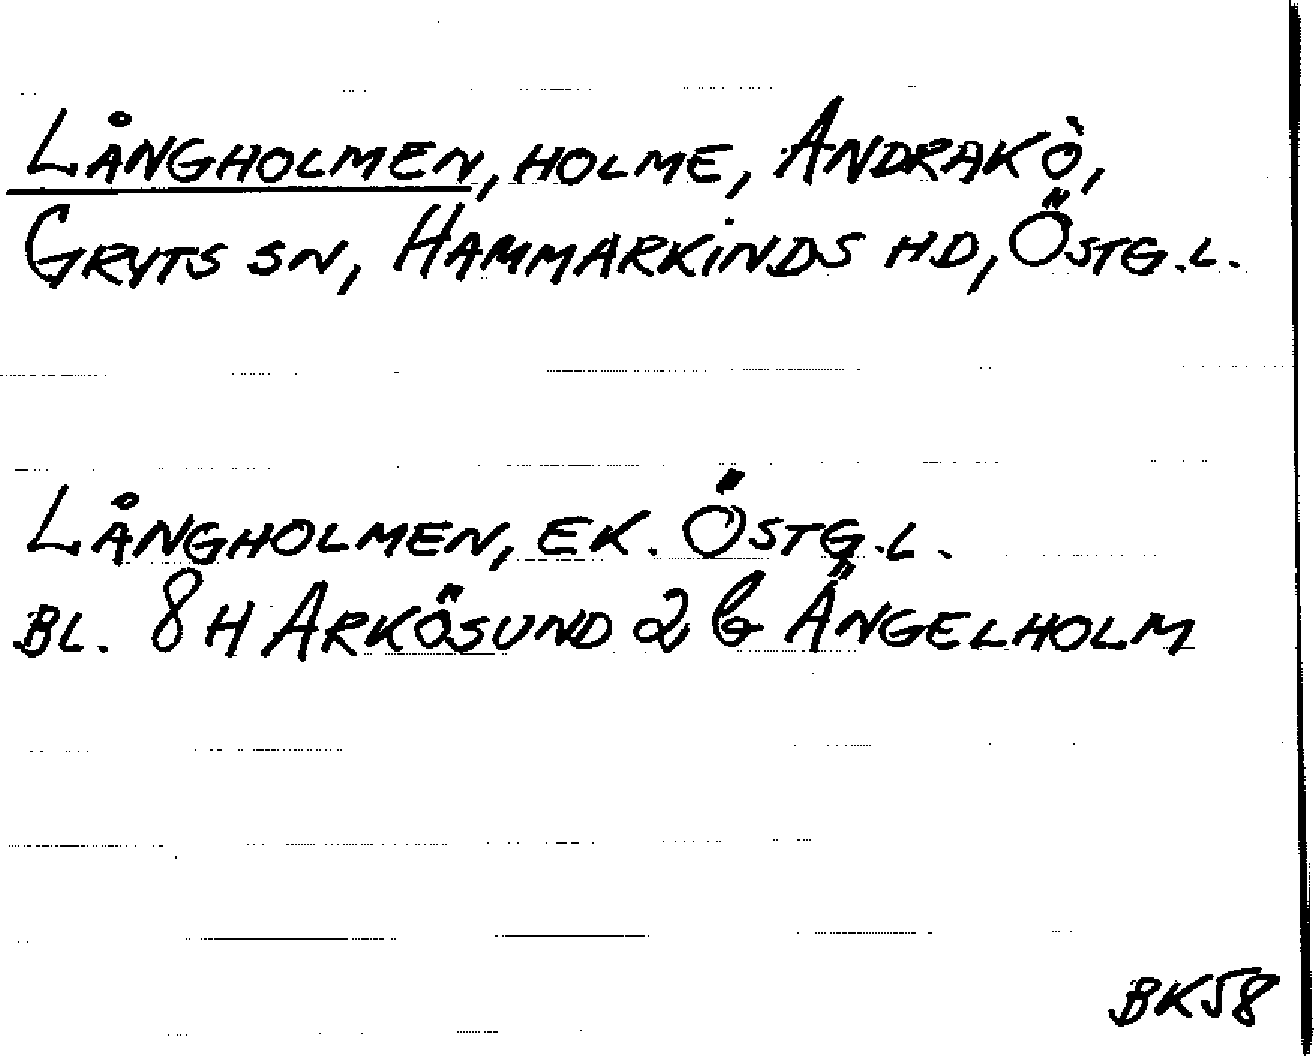 LÅNGHOLMEN, HOLME, ANDRAKÖ,
GRYTS SN, HAMMARKINDS HD, ÖSTG.L.
LÅNGHOLMEN, EK. ÖSTG.L.
BL. 8 H ARKÖSUND 2 b ÄNGELHOLM
BK58